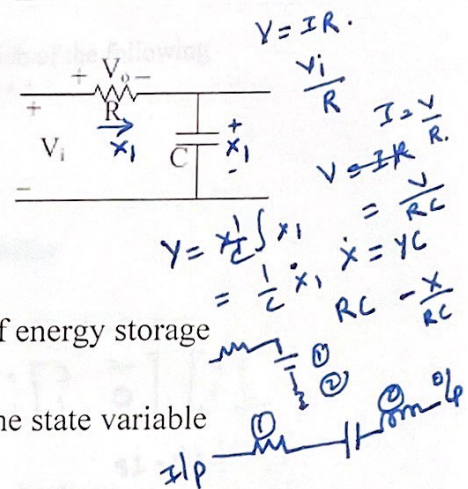 of the following
V = IR.
Vi / R
+ Vo −
R
x1
+
Vi
−
C
+
x1
−
I = V / R.
V = IR
= V / RC
Y = 1/C ∫ x1
ẋ = YC
= 1/C ẋ1
RC − x / RC
f energy storage
① 
②
ne state variable
I/p
①
②
o/p